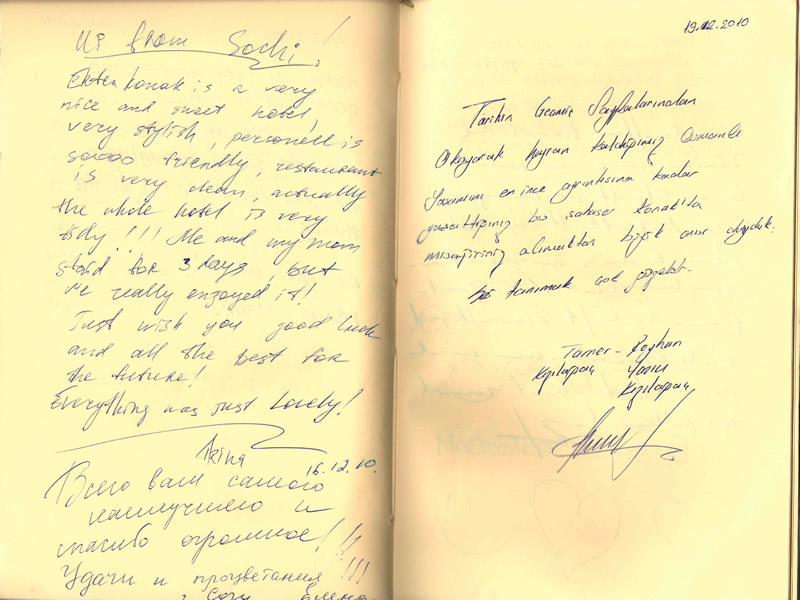 Hi from Sochi!
Ekten konak is a very
nice and sweet hotel,
very stylish, personell is
soooo friendly, restaurant
is very clean, actually
the whole hotel is very
tidy!!! Me and my mom
staid for 3 days, but
we really enjoyed it!
Just wish you good luck
and all the best for
the future!
Everything was just lovely!
16.12.10.
Всего вам самого
наилучшего и
спасибо огромное!!!
Удачи и процветания!!!
Сочи Елена
19.12.2010
Tarihin Geçmiş Sayfalarından
Okuyarak hayran kaldığımız Osmanlı
Yaşamını en ince ayrıntısına kadar
yaşattığınız bu şaheser konakta
misafiriniz olmaktan büyük onur duyduk.
Sizi tanımak çok güzeldi.
Tamer - Reyhan